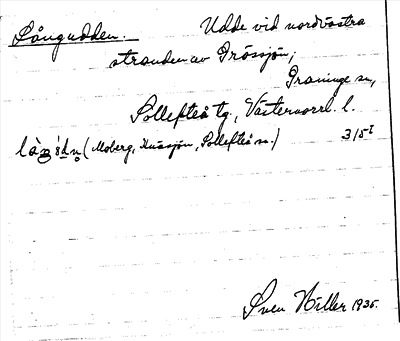 Långudden. Udde vid nordvästra
stranden av Grössjön,
Graninge sn,
Sollefteå tg., Västernorrl. l.
(Moberg, Krässjön, Sollefteå sn.) 3/5 I
Sven Hiller 1935.